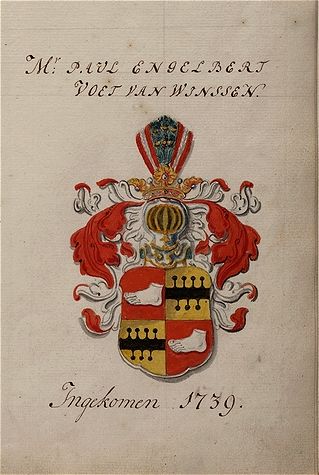 Mr. PAUL ENGELBERT
VOET VAN WINSSEN.
Ingekomen 1739.